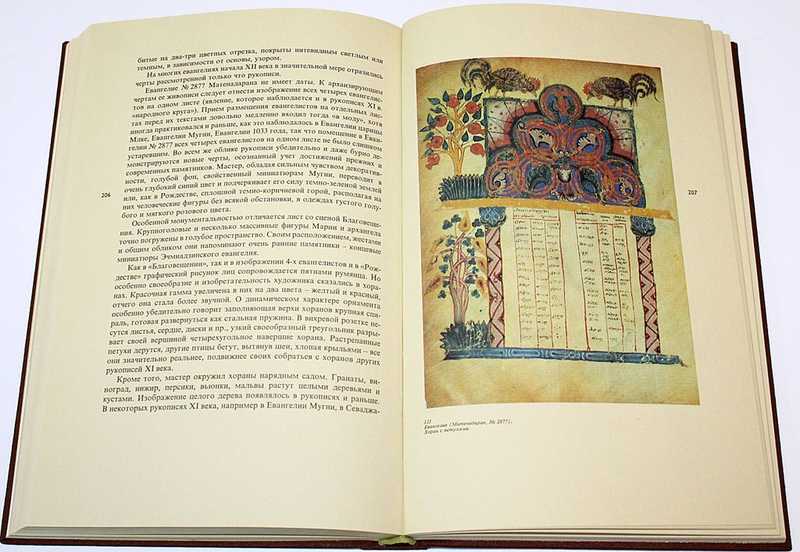 битые на два-три цветных отрезка, покрыты нитевидным светлым или
темным, в зависимости от основы, узором.
На многих евангелиях начала XII века в значительной мере отразились
черты рассмотренной только что рукописи.
Евангелие № 2877 Матенадарана не имеет даты. К архаизирующим
чертам ее живописи следует отнести изображение всех четырех евангелис-
тов на одном листе (явление, которое наблюдается и в рукописях XI в.
«народного круга»). Прием размещения евангелистов на отдельных лис-
тах перед их текстами довольно медленно входил тогда «в моду», хотя
иногда практиковался и раньше, как это наблюдалось в Евангелии царицы
Млке, Евангелии Мугни, Евангелии 1033 года, так что помещение в Еван-
гелии № 2877 всех четырех евангелистов на одном листе не было слишком
устаревшим. Во всем же облике рукописи убедительно и даже бурно де-
монстрируются новые черты, осознанный учет достижений прежних и
современных памятников. Мастер, обладая сильным чувством декоратив-
ности, голубой фон, свойственный миниатюрам Мугни, переводит в
очень глубокий синий цвет и подчеркивает его силу темно-зеленой землей
или, как в Рождестве, сплошной темно-коричневой горой, располагая на
них человеческие фигуры без всякой обстановки, в одеждах густого голу-
бого и мягкого розового цвета.
206
Особенной монументальностью отличается лист со сценой Благовеще-
ния. Крупноголовые и несколько массивные фигуры Марии и архангела
точно погружены в голубое пространство. Своим расположением, жестами
и общим обликом они напоминают очень ранние памятники – концевые
миниатюры Эчмиадзинского евангелия.
Как в «Благовещении», так и в изображении 4-х евангелистов и в «Рож-
дестве» графический рисунок лиц сопровождается пятнами румянца. Но
особенно своеобразие и изобретательность художника сказались в хора-
нах. Красочная гамма увеличена в них на два цвета – желтый и красный,
отчего она стала более звучной. О динамическом характере орнамента
особенно убедительно говорит заполняющая верхи хоранов крупная спи-
раль, готовая развернуться как стальная пружина. В вихревой розетке не-
сутся листья, сердце, диски и пр., узкий своеобразный треугольник разры-
вает своей вершиной четырехугольное навершие хорана. Растрепанные
петухи дерутся, другие птицы бегут, вытянув шеи, хлопая крыльями – все
они значительно реальнее, подвижнее своих собратьев с хоранов других
рукописей XI века.
Кроме того, мастер окружил хораны нарядным садом. Гранаты, ви-
ноград, инжир, персики, вьюнки, мальвы растут целыми деревьями и
кустами. Изображение целого дерева появлялось в рукописях и раньше.
В некоторых рукописях XI века, например в Евангелии Мугни, в Севаджа-
207
Евангелие (Матенадаран, № 2877).
Хоран с петухами